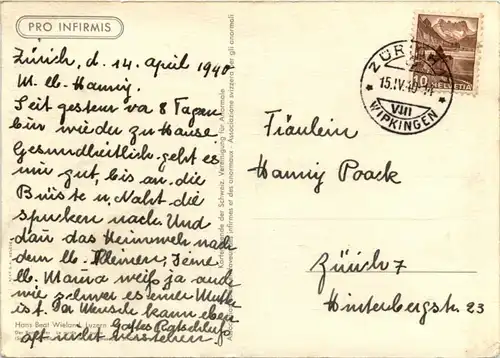 PRO INFIRMIS
Zürich, d. 14. April 1940
M. lb. Hanny.
Seit gestern vor 8 Tagen
bin wieder zu Hause
Gesundheitlich geht es
mir gut, bis an die
Brüste u. Naht die
spuken nach. Und
dan das Heimweh nach
dem lb. Kleinen; Deine
lb. Mama weiß ja auch
wie schwer es einer Mutter
ist. Der Mensch kann eben
Gottes Ratschluss
oft nicht verstehen.
Hans Beat Wieland, Luzern
Kartenspende der Schweiz. Vereinigung für Anormale
infirmes et des anormaux - Associazione svizzera per gli anormali
ZÜRICH
15.IV.40
VIII
WIPKINGEN
10 HELVETIA
Fräulein
Hanny Poack
Zürich 7
Hinterbergstr. 23